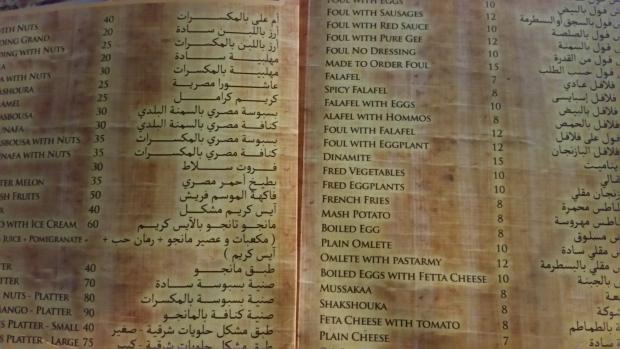 WITH NUTS 40 أم على بالمكسرات
DING GRAND 20 أرز باللبن سادة
DING WITH NUTS 30 أرز باللبن بالمكسرات
20 مهلبية سادة
WITH NUTS 30 مهلبية بالمكسرات
ASHOURA 25 عاشورا مصرية
AMEL 25 كريم كرامل
ASBOUSA 30 بسبوسة مصري بالسمنة البلدي
UNAFA 30 كنافة مصري بالسمنة البلدي
ASBOUSA WITH NUTS 35 بسبوسة مصري بالمكسرات
UNAFA WITH NUTS 35 كنافة مصري بالمكسرات
30 فروت سلاط
TER MELON 35 بطيخ أحمر مصري
SH FRUITS 50 فاكهة الموسم فريش
X 40 آيس كريم مشكل
O WITH ICE CREAM 60 مانجو تانجو بالآيس كريم
JUICE + POMIGRANATE + ( مكعبات و عصير مانجو + رمان حب +
آيس كريم )
TTER 40 طبق مانجو
ATTER 70 صنية بسبوسة سادة
NUTS - PLATTER 80 صنية بسبوسة بالمكسرات
MANGO - PLATTER 90 صنية كنافة بالمانجو
TS PLATTER - SMALL 40 طبق مشكل حلويات شرقية - صغير
TS PLATTER - LARGE 75 طبق مشكل حلويات شرقية - كبير
FOUL WITH EGGS 10 فول بالبيض
FOUL WITH SAUSAGES 12 فول بالسجق أو البسطرمة
FOUL WITH RED SAUCE 10 فول بالصلصة
FOUL WITH PURE GEF 12 فول بالسمنة
FOUL NO DRESSING 10 فول من القدرة
MADE TO ORDER FOUL 15 فول حسب الطلب
FALAFEL 7 فلافل عادي
SPICY FALAFEL 8 فلافل اسبايسى
FALAFEL WITH EGGS 10 فلافل بالبيض
ALAFEL WITH HOMMOS 8 فلافل بالحمص
FOUL WITH FALAFEL 12 فول على فلافل
FOUL WITH EGGPLANT 12 البازنجان
DINAMITE 15
FRED VEGETABLES 10
FRED EGGPLANTS 10 مقلي
FRENCH FRIES 8 محمرة
MASH POTATO 8 مهروسة
BOILED EGG 8 مسلوق
PLAIN OMLETE 8 مقلي سادة
OMLETE WITH PASTARMY 12 مقلي بالبسطرمة
BOILED EGGS WITH FETTA CHEESE 10 بالجبنة
MUSSAKAA 8
SHAKSHOUKA 8
FETA CHEESE WITH TOMATO 8 بالطماطم
PLAIN CHEESE 7 سادة